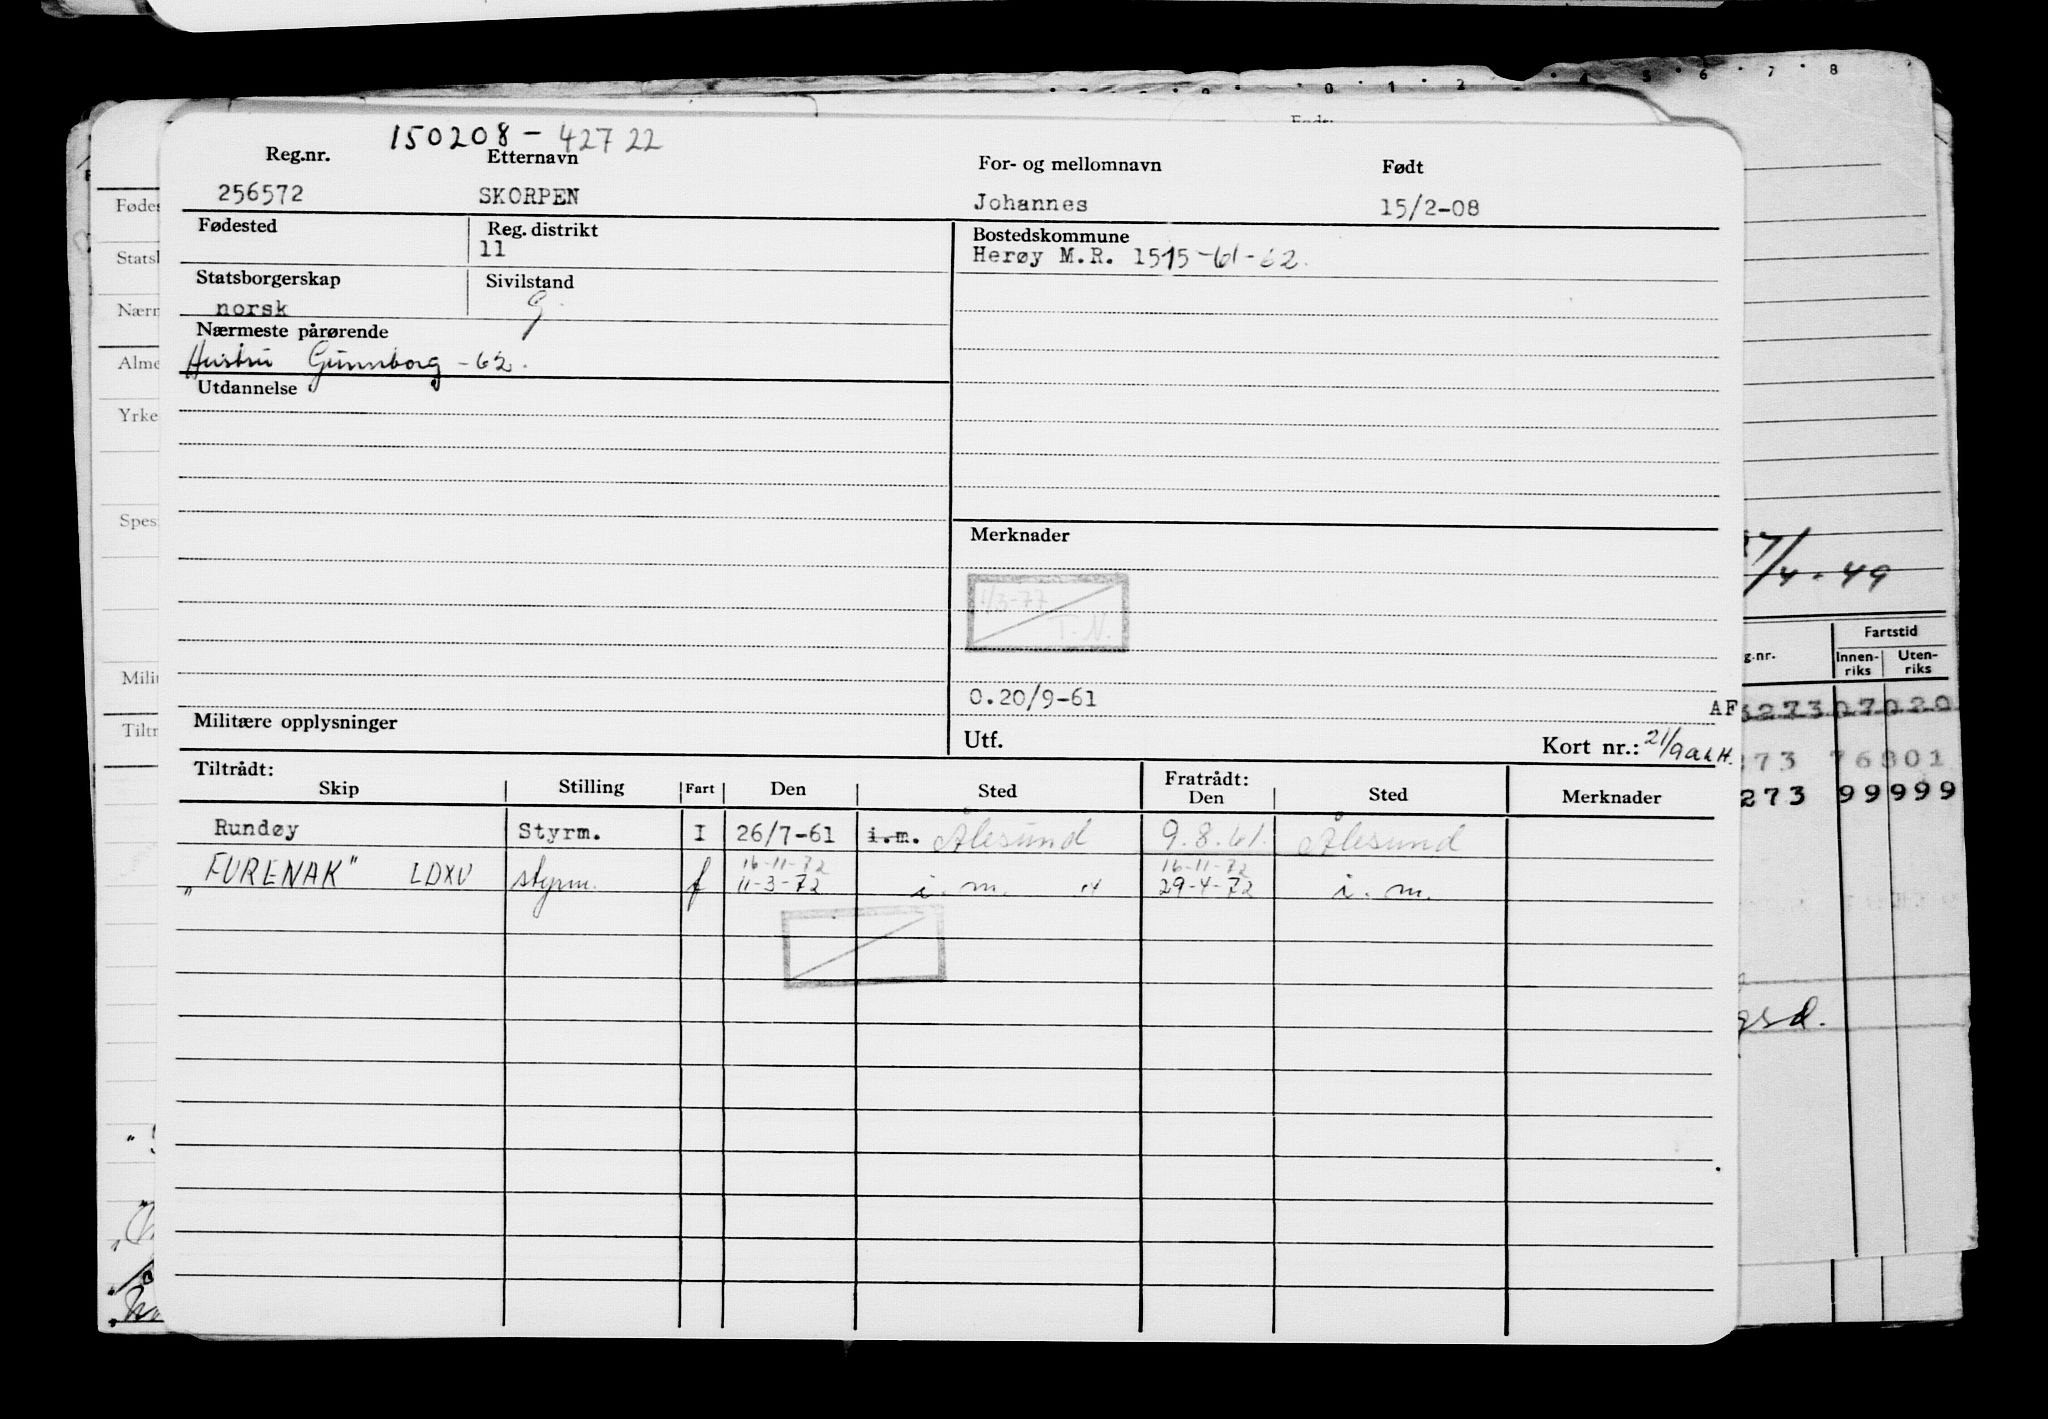 0 1 2 4 5 6 7 8
Født:
150208-42722
Reg.nr. Etternavn For- og mellomnavn Født
256572 SKORPEN Johannes 15/2-08
Fødested Reg. distrikt Bostedskommune
11 Herøy M.R. 1515-61-62.
Statsborgerskap Sivilstand
norsk G
Nærmeste pårørende
Hustru Gunnborg -62.
Utdannelse
Merknader
1/3-77
T.N.
O.20/9-61
Militære opplysninger
Utf. Kort nr.: 21/9
Tiltrådt: Fratrådt:
Skip Stilling Fart Den Sted Den Sted Merknader
Rundøy Styrm. I 26/7-61 i.m. Ålesund 9.8.61. Ålesund
16-11-72 16-11-72
"FURENAK" LDXU styrm. f 11-3-72 i.m. 29-4-72 i.m.
Statsl
Nærr
Alme
Yrke
Spes
Milit
Tiltr
27/4-49
Fartstid
g.nr. Innen-riks Uten-riks
AF
273 99999